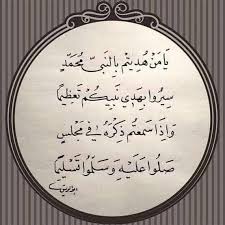 يَا مَنْ هُدِيتُم بِالنَّبِيِّ مُحَمَّدٍ
سِيرُوا بِهَدْيِ نَبِيِّكُمْ تَعْظِيمًا
وَإِذَا سَمِعْتُم ذِكْرَهُ فِي مَجْلِسٍ
صَلُّوا عَلَيْهِ وَسَلِّمُوا تَسْلِيمًا